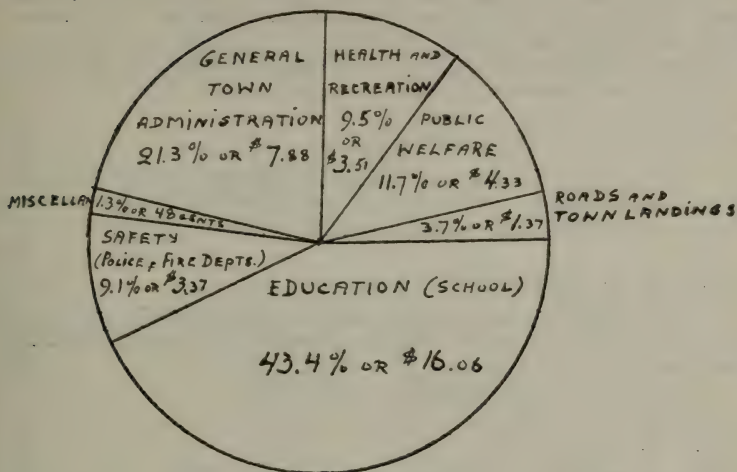 GENERAL
TOWN
ADMINISTRATION
21.3% OR $7.88
HEALTH AND
RECREATION
9.5%
OR
$3.51
PUBLIC
WELFARE
11.7% OR $4.33
ROADS AND
TOWN LANDINGS
3.7% OR $1.37
MISCELLAN
1.3% OR 48 CENTS
SAFETY
(POLICE & FIRE DEPTS.)
9.1% OR $3.37
EDUCATION (SCHOOL)
43.4% OR $16.06